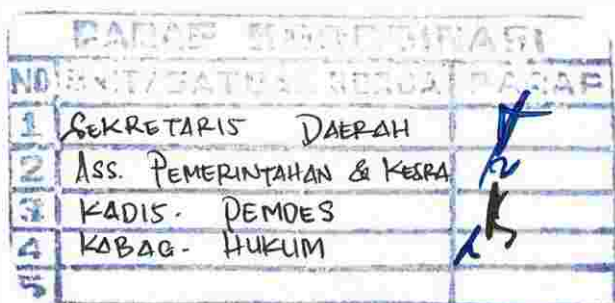 PARAF KOORDINASI
NO UNIT/SATUAN KERJA PARAF
1 SEKRETARIS DAERAH
2 ASS. PEMERINTAHAN & KESRA
3 KADIS. PEMDES
4 KABAG. HUKUM
5